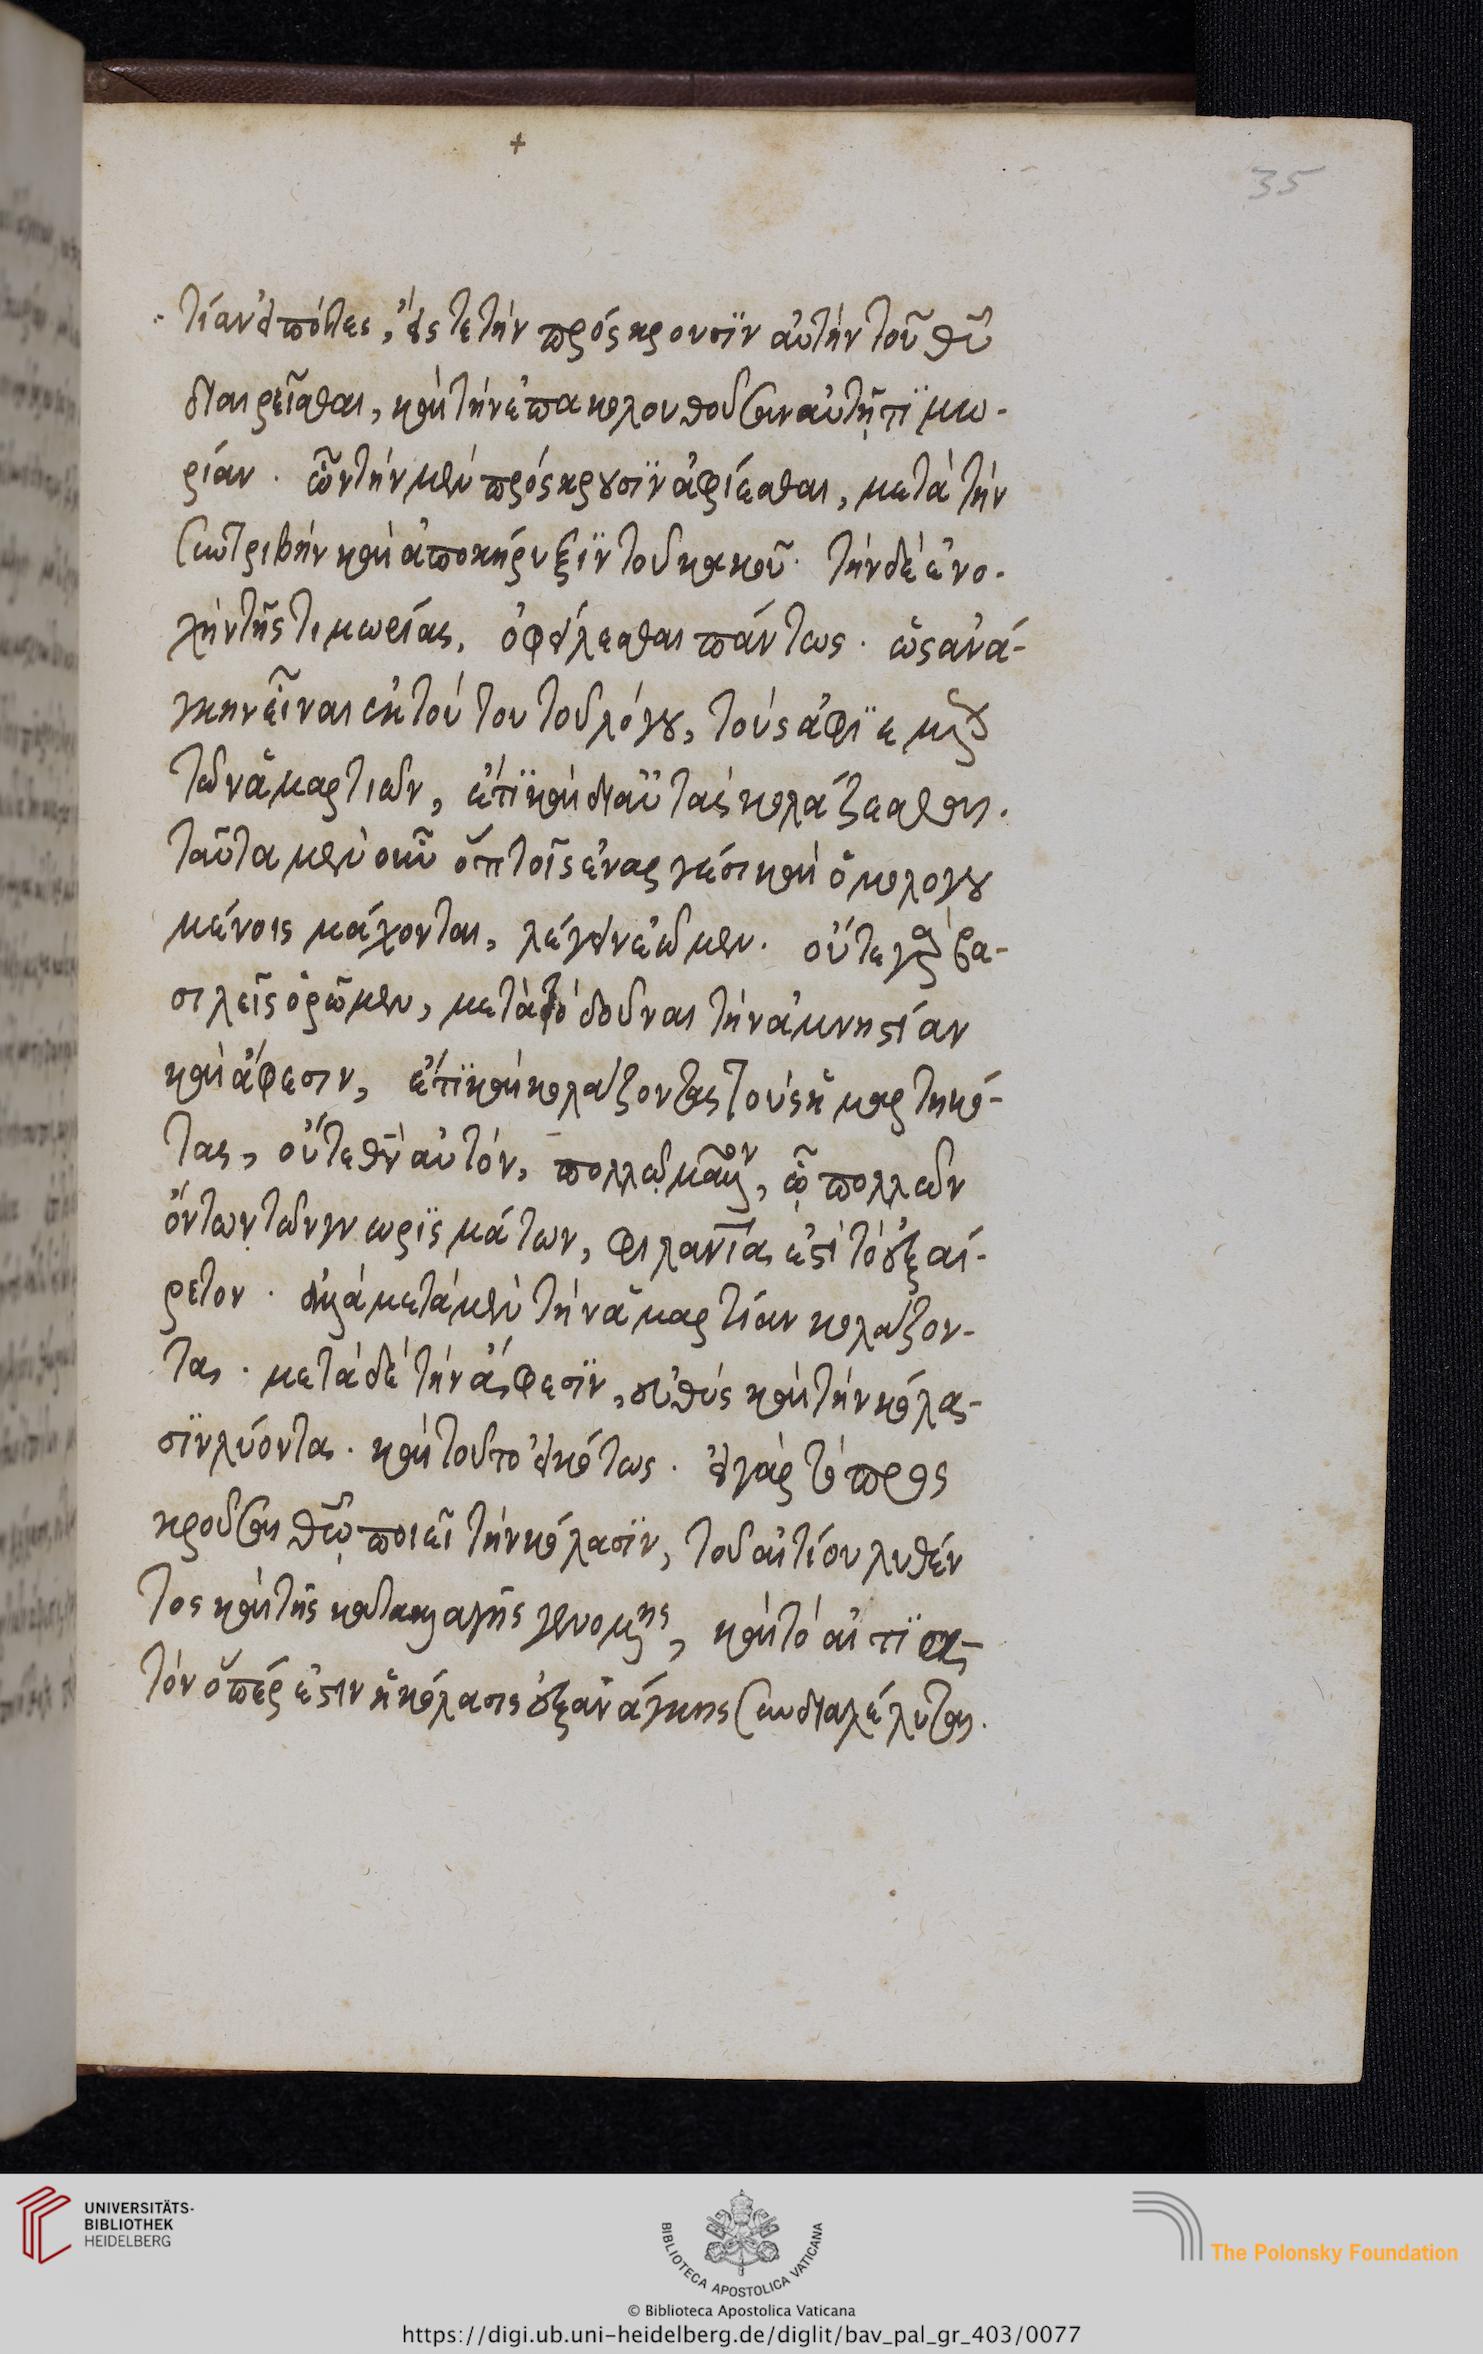 +
35
τίαν εἰπόντες, εἴς τε τὴν πρόςκρουσϊν αὐτὴν τοῦ θῦ
διαιρεῖσθαι, καὶ τὴν ἐπακολουθοῦσαν αὐτῇ τϊμω-
ρίαν. ὧν τὴν μὲν πρόςκρουσϊν ἀφίεσθαι, μετὰ τὴν
συντριβὴν καὶ ἀποκήρυξϊν τοῦ κακοῦ. τὴν δὲ ἐνο-
χὴν τῆς τιμωρίας, ὀφείλεσθαι πάντως. ὡς ἀνά-
γκην εἶναι ἐκ τούτου τοῦ λόγου, τοὺς ἀφϊεμένους
τῶν ἁμαρτιῶν, ἔτϊ καὶ δι αὐτὰς κολάζεσθαι.
ταῦτα μὲν οὖν ὅτι τοῖς ἐναργέσι καὶ ὁμολογου
μένοις μάχονται, λέγειν ἐῶμεν. οὔτε γὰρ βα-
σιλεῖς ὁρῶμεν, μετὰ τὸ δοῦναι τὴν ἀμνηστίαν
καὶ ἄφεσιν, ἔτϊ καὶ κολάζοντας τοὺς ἡμαρτηκό-
τας, οὔτε θν̄ αὐτόν, πολλῷ μᾶλλον, ᾧ πολλῶν
ὄντων τῶν γνωρϊςμάτων, φιλανία ἐστὶ τὸ ἐξαί-
ρετον. ἀλλὰ μετὰ μὲν τὴν ἁμαρτίαν κολάζον-
τας. μετὰ δὲ τὴν ἄφεσϊν, εὐθὺς καὶ τὴν κόλα-
σϊν λύοντας. καὶ τοῦτο εἰκότως. εἰ γὰρ τὸ προς
κροῦσαι θεῷ ποιεῖ τὴν κόλασϊν, τοῦ αἰτίου λυθέν
τος καὶ τῆς καταλλαγῆς γενομένης, καὶ τὸ αἰτϊα-
τὸν ὅπέρ ἐστιν ἡ κόλασις ἐξ ἀνάγκης συνδιαλέλυται.
UNIVERSITÄTS-
BIBLIOTHEK
HEIDELBERG
BIBLIOTECA APOSTOLICA VATICANA
The Polonsky Foundation
© Biblioteca Apostolica Vaticana
https://digi.ub.uni-heidelberg.de/diglit/bav_pal_gr_403/0077